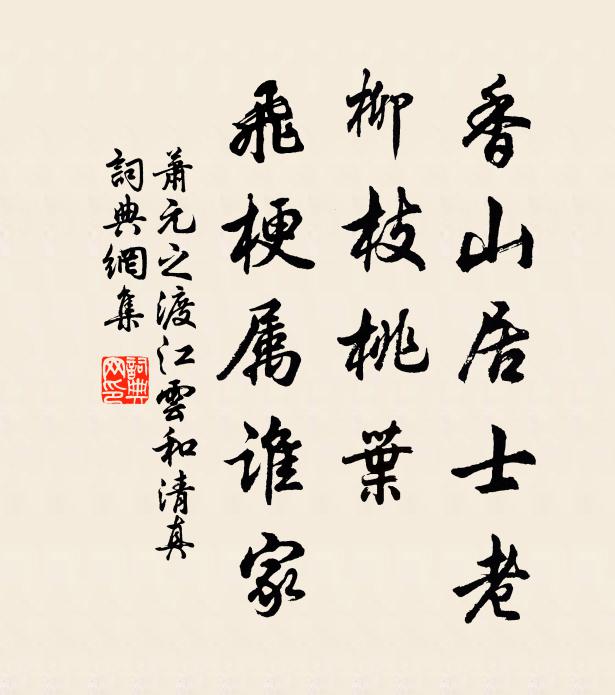 香山居士老
柳枝桃葉
飛梗属谁家
蕭元之渡江雲和清真
詞典網集
詞典
网印